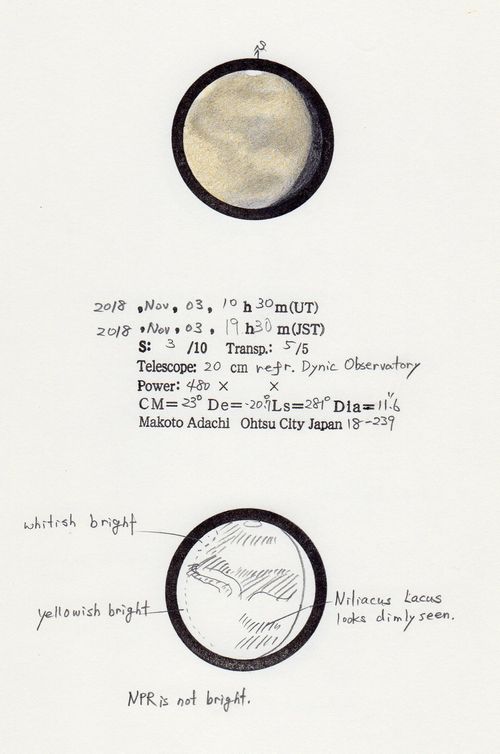 S
2018, Nov, 03, 10 h 30 m (UT)
2018, Nov, 03, 19 h 30 m (JST)
S: 3 /10 Transp.: 5/5
Telescope: 20 cm refr. Dynic Observatory
Power: 480 × ×
CM= 23° De= -20.7° Ls= 281° Dia= 11.6"
Makoto Adachi Ohtsu City Japan 18-239
whitish bright
Niliacus Lacus
yellowish bright
looks dimly seen.
NPR is not bright.